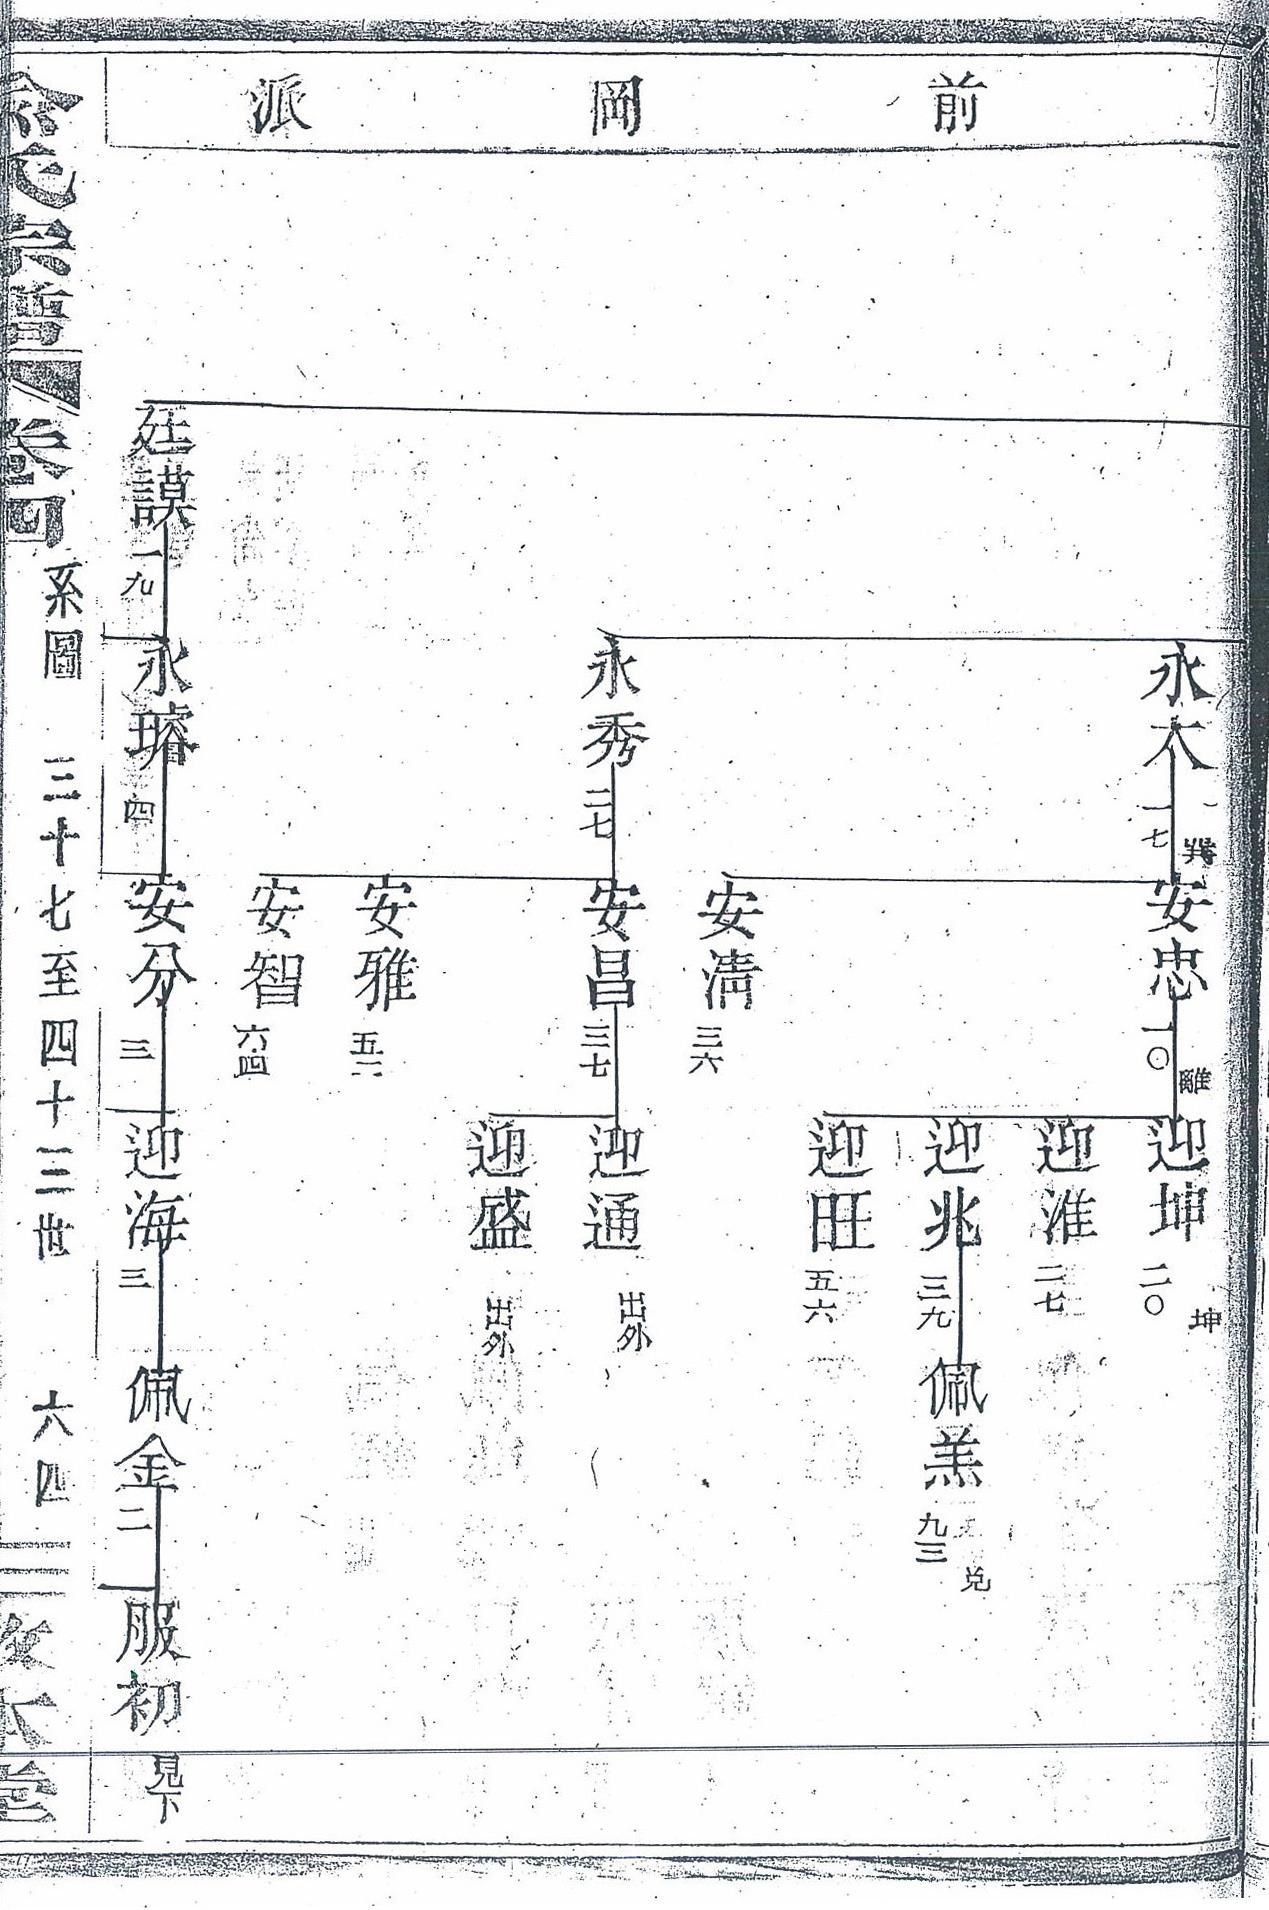 前岡派
永大
一七
巽
安忠
一〇
離
迎坤
二〇
坤
迎淮
二七
迎兆
三九
佩羔
九三
兑
迎旺
五六
安淸
三六
永秀
二七
安昌
三七
迎通
出外
迎盛
出外
安雅
安智
六四
廷謨
一九
永璿
四
安分
三
迎海
三
佩金
二
服初
見下
氏宗譜
卷四
系圖 三十七至四十二世 六四
本堂